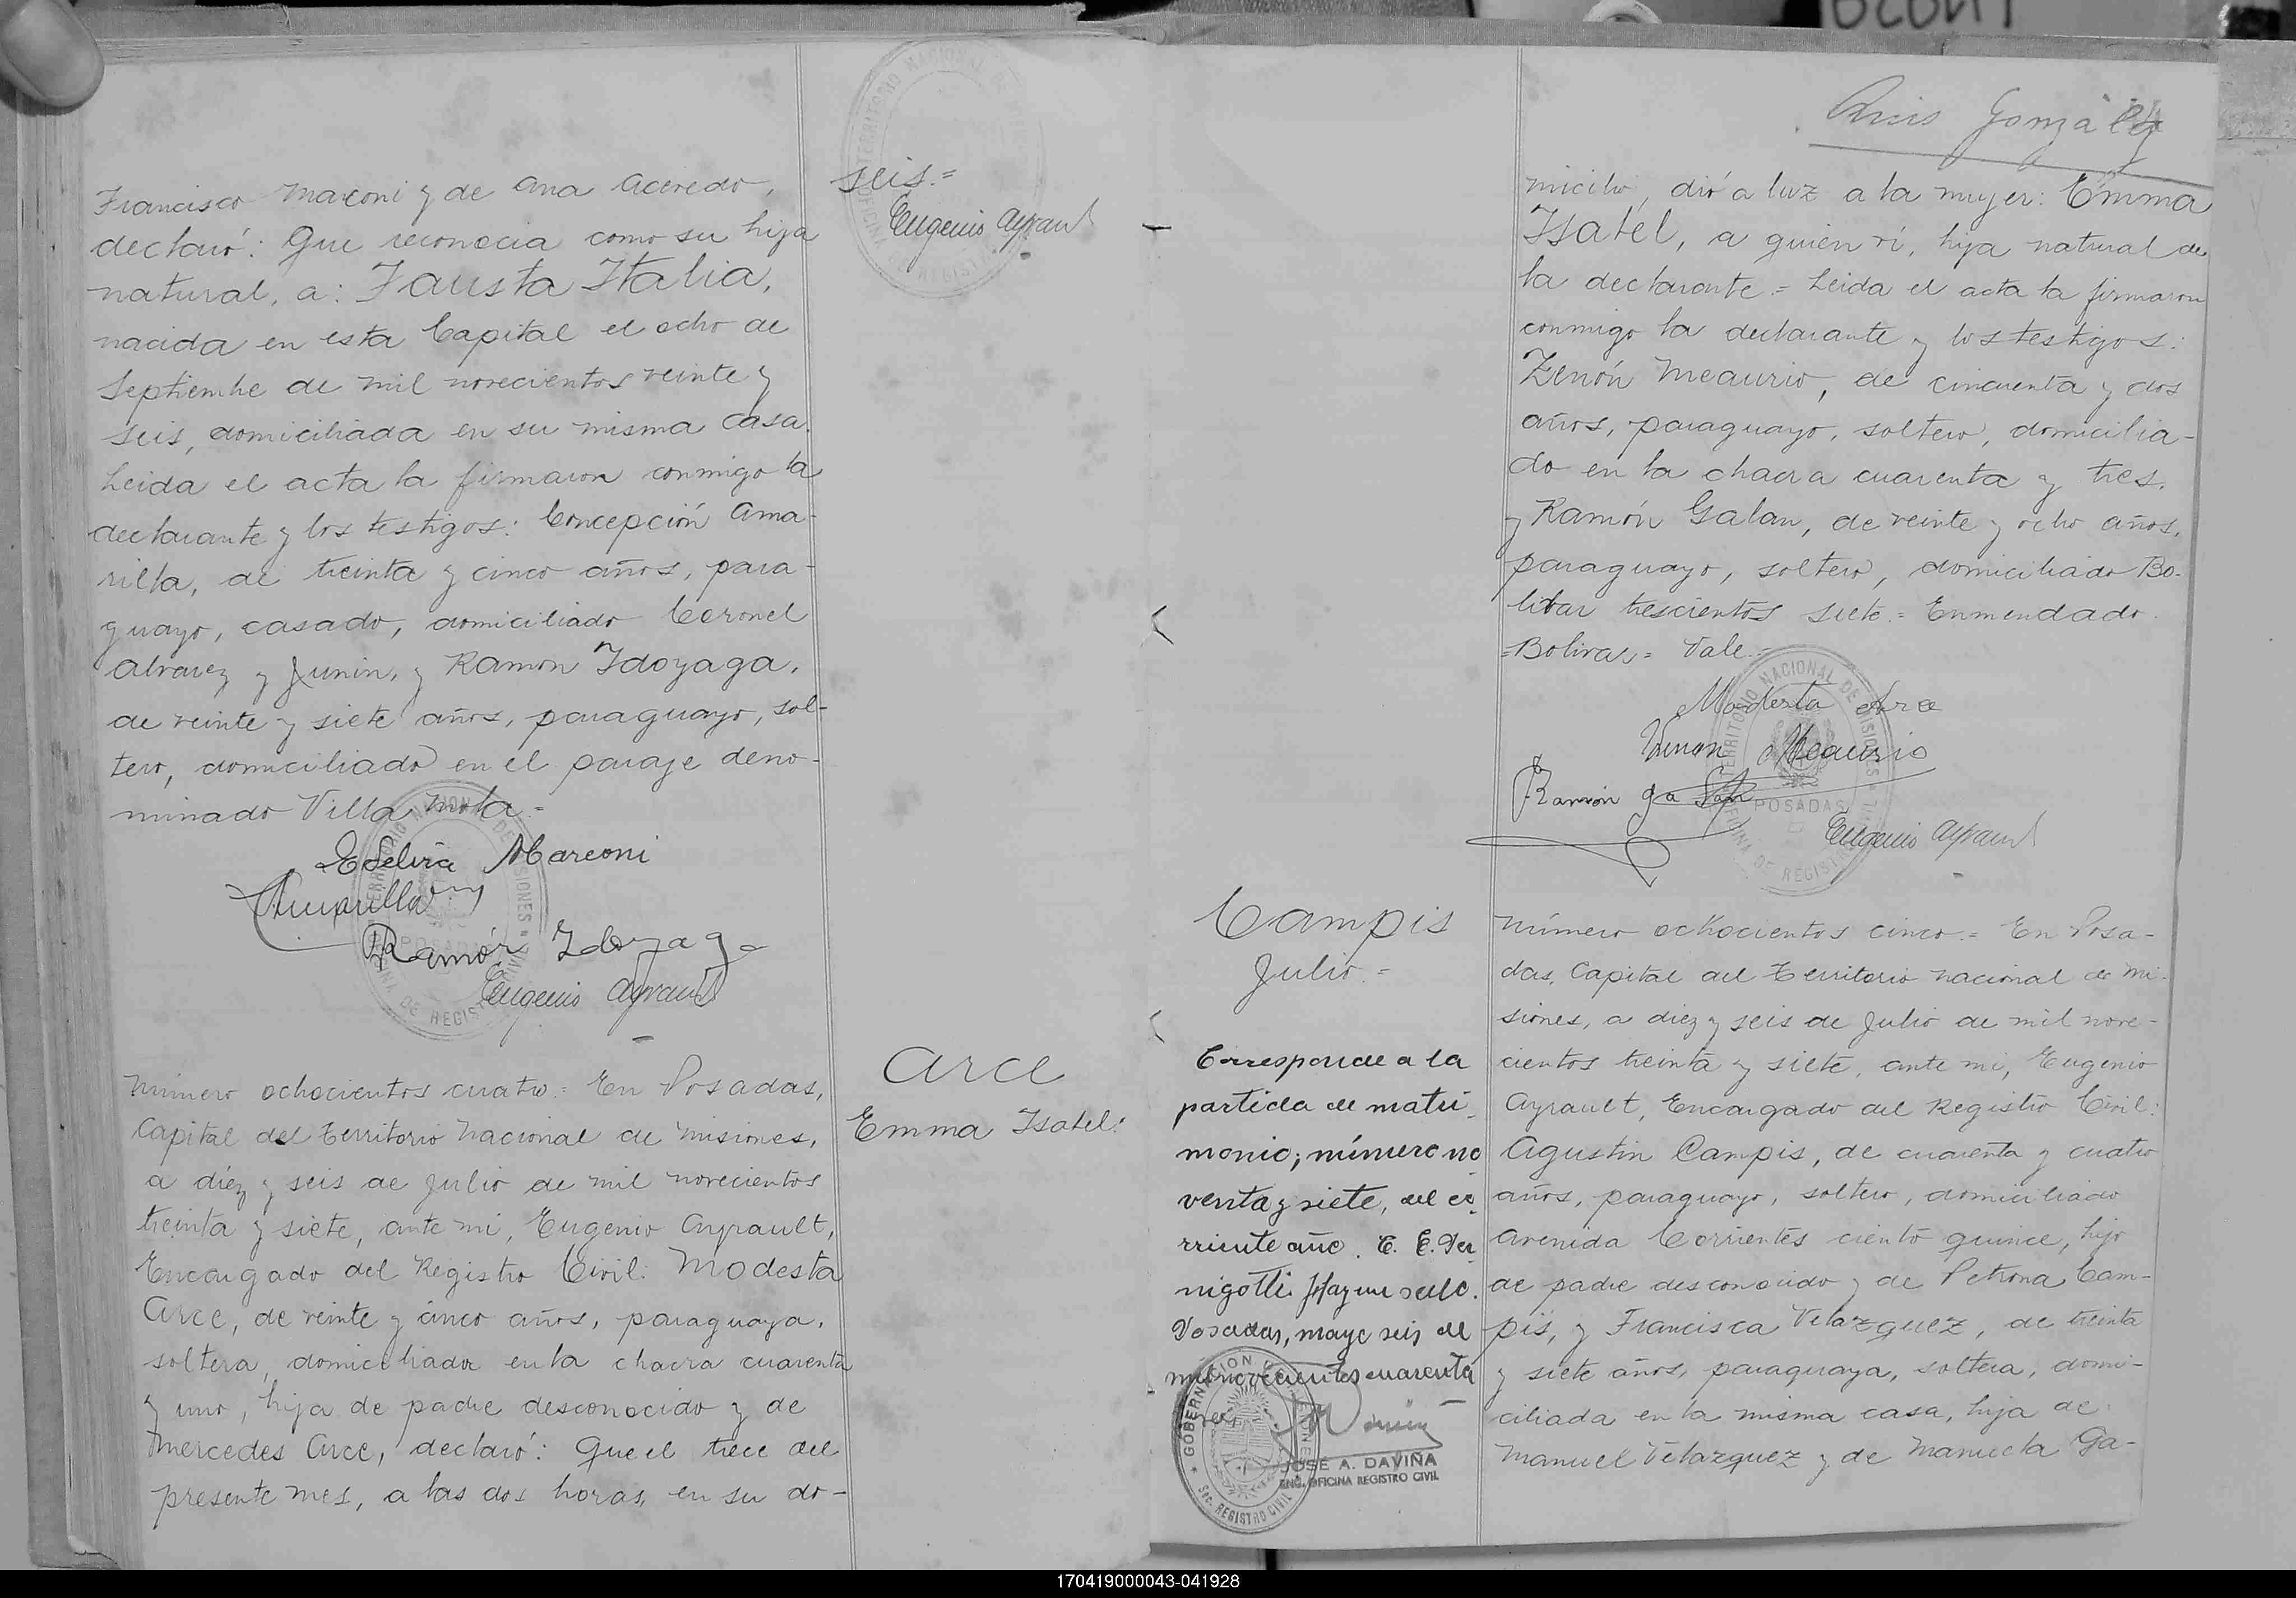 Francisco Marconi y de Ana Acevedo,
declaró: Que reconocia como su hija
natural, a: Fausta Italia,
nacida en esta Capital el ocho de
Septiembre de mil novecientos veinte y
seis, domiciliada en su misma casa.
Leida el acta la firmaron conmigo la
declarante y los testigos: Concepción Ama-
rilla, de treinta y cinco años, para-
guayo, casado, domiciliado Coronel
Alvarez y Junin, y Ramon Idoyaga,
de veinte y siete años, paraguayo, sol-
tero, domiciliado en el paraje deno-
minado Villa Mola =
Eselvia Marconi
CAmarilla
Ramón Idoyaga
Eugenio Ayrault
seis.=
Eugenio Ayrault
Número ochocientos cuatro = En Posadas,
Capital del Territorio Nacional de Misiones,
a diez y seis de Julio de mil novecientos
treinta y siete, ante mi, Eugenio Ayrault,
Encargado del Registro Civil: Modesta
Arce, de veinte y cinco años, paraguaya,
soltera, domiciliada en la chacra cuarenta
y uno, hija de padre desconocido y de
Mercedes Arce, declaró: Que el trece del
presente mes, a las dos horas, en su do-
Arce
Emma Isabel:
Luis González
micilio, dió a luz a la mujer: Emma
Isabel, a quien ví, hija natural de
la declarante.= Leida el acta la firmaron
conmigo la declarante y los testigos:
Zenón Meaurio, de cincuenta y dos
años, paraguayo, soltero, domicilia-
do en la chacra cuarenta y tres,
y Ramón Galan, de veinte y ocho años,
paraguayo, soltero, domiciliado Bo-
livar trescientos siete.= Enmendado.
=Bolivar= Vale.=
TERRITORIO NACIONAL DE MISIONES
POSADAS
OFICINA DE REGISTRO CIVIL
Modesta Arce
Zenon Meaurio
Ramón Galan
Eugenio Ayrault
Campis
Julio.=
Corresponde a la
partida de matri-
monio; número no
venta y siete, del co
rriente año. C. E. Per
nigotti. Hay un sello.
Posadas, mayo seis de
mil novecientos cuarenta
GOBERNACION
Sec. REGISTRO CIVIL
JOSE A. DAVIÑA
ENC. OFICINA REGISTRO CIVIL
Número ochocientos cinco.= En Posa-
das, Capital del Territorio Nacional de Mi-
siones, a diez y seis de Julio de mil nove-
cientos treinta y siete, ante mi, Eugenio
Ayrault, Encargado del Registro Civil:
Agustin Campis, de cuarenta y cuatro
años, paraguayo, soltero, domiciliado
Avenida Corrientes ciento quince, hijo
de padre desconocido y de Petrona Cam-
pis, y Francisca Velazquez, de treinta
y siete años, paraguaya, soltera, domi-
ciliada en la misma casa, hija de
Manuel Velazquez y de Manuela Ga-
170419000043-041928